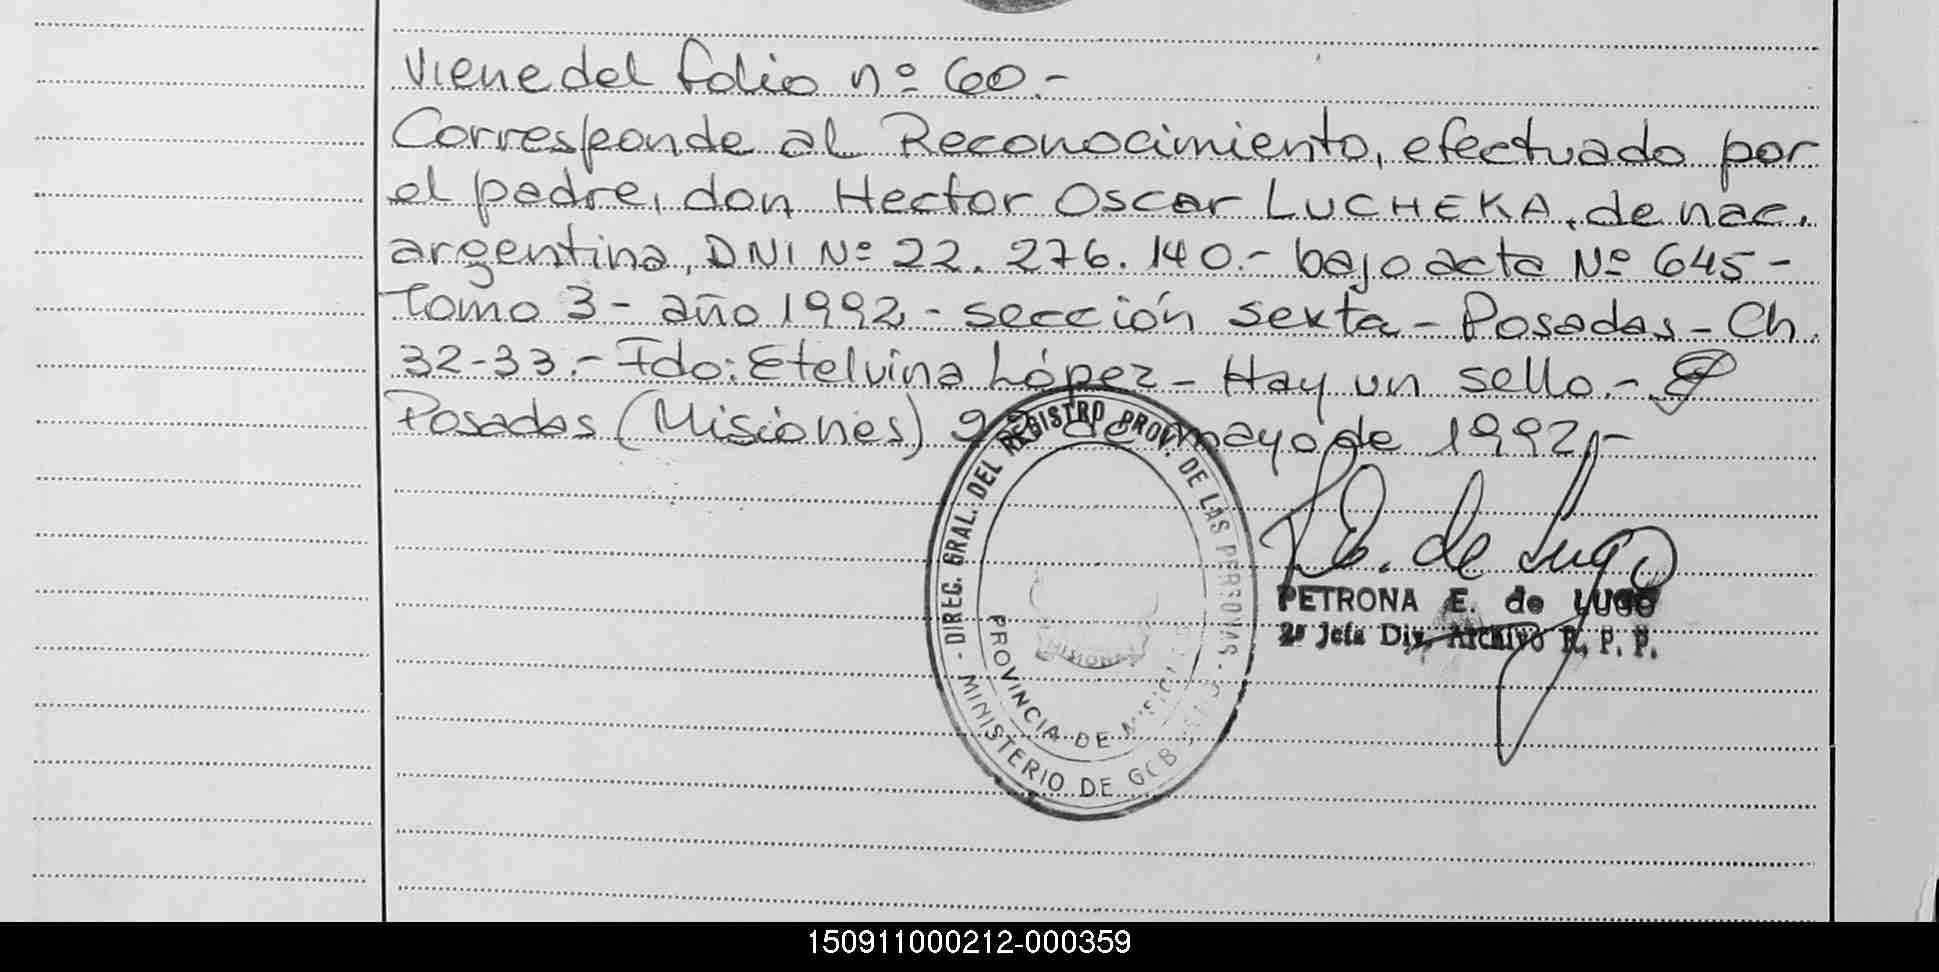 Viene del folio nº 60.-
Corresponde al Reconocimiento, efectuado por
el padre, don Hector Oscar LUCHEKA, de nac.
argentina, DNI Nº 22.276.140.- bajo acta Nº 645-
Tomo 3- año 1992,- sección sexta- Posadas- Ch.
32-33.- Fdo: Etelvina López- Hay un sello.-
Posadas (Misiones) de mayo de 1992,-
- DIREC. GRAL. DEL REGISTRO PROV. DE LAS PERSONAS -
PROVINCIA DE
MINISTERIO DE
P.E. de Lugo
PETRONA E. de LUGO
2ª Jefa Div. Archivo R. P. P.
150911000212-000359